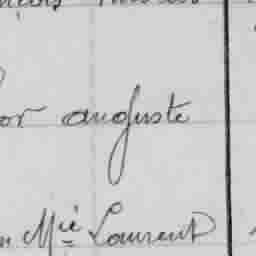 or auguste
n Mie Laurent